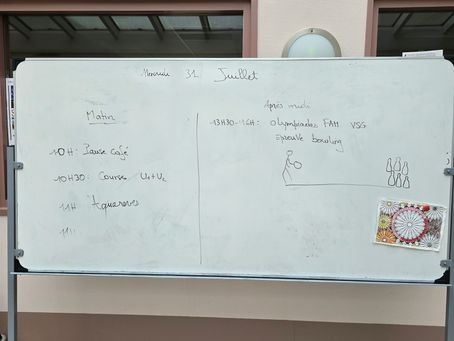 Mercredi 31 Juillet
Matin
10H: Pause café
10H30: Course U1+U2
11H Aquarevers
Après midi
13H30-16H: Olympiades FAM VSG
épreuve bowling